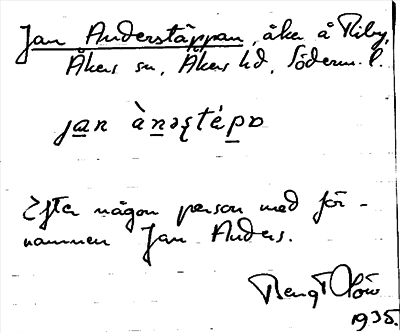 Jan Anderstäppan, åker å Riby,
Åkers sn, Åkers hd, Söderm. l.
jan ànəʂtɛ́pɒ
Efter någon person med för-
namnen Jan Anders.
Bengt Olóu
1935.